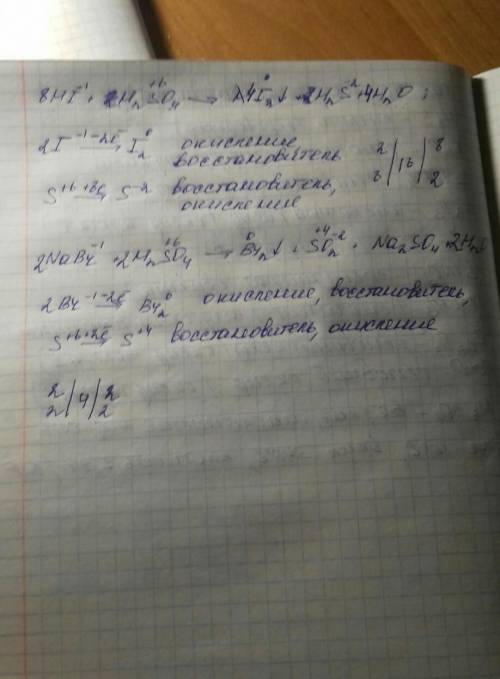 8HI⁻¹ + H₂S⁺⁶O₄ → 4I₂⁰↓ + H₂S⁻² + 4H₂O
2I⁻¹ -2e̅→ I₂⁰ окисление
восстановитель
2 | 16 | 8
8 | | 2
S⁺⁶ +8e̅→ S⁻² восстановитель,
окисление
2NaBr⁻¹ + 2H₂S⁺⁶O₄ → Br₂⁰↓ + S⁺⁴O₂⁻² + Na₂SO₄ + 2H₂O
2Br⁻¹ -2e̅→ Br₂⁰ окисление, восстановитель,
S⁺⁶ +2e̅→ S⁺⁴ восстановитель, окисление
2 | 4 | 2
2 | | 2